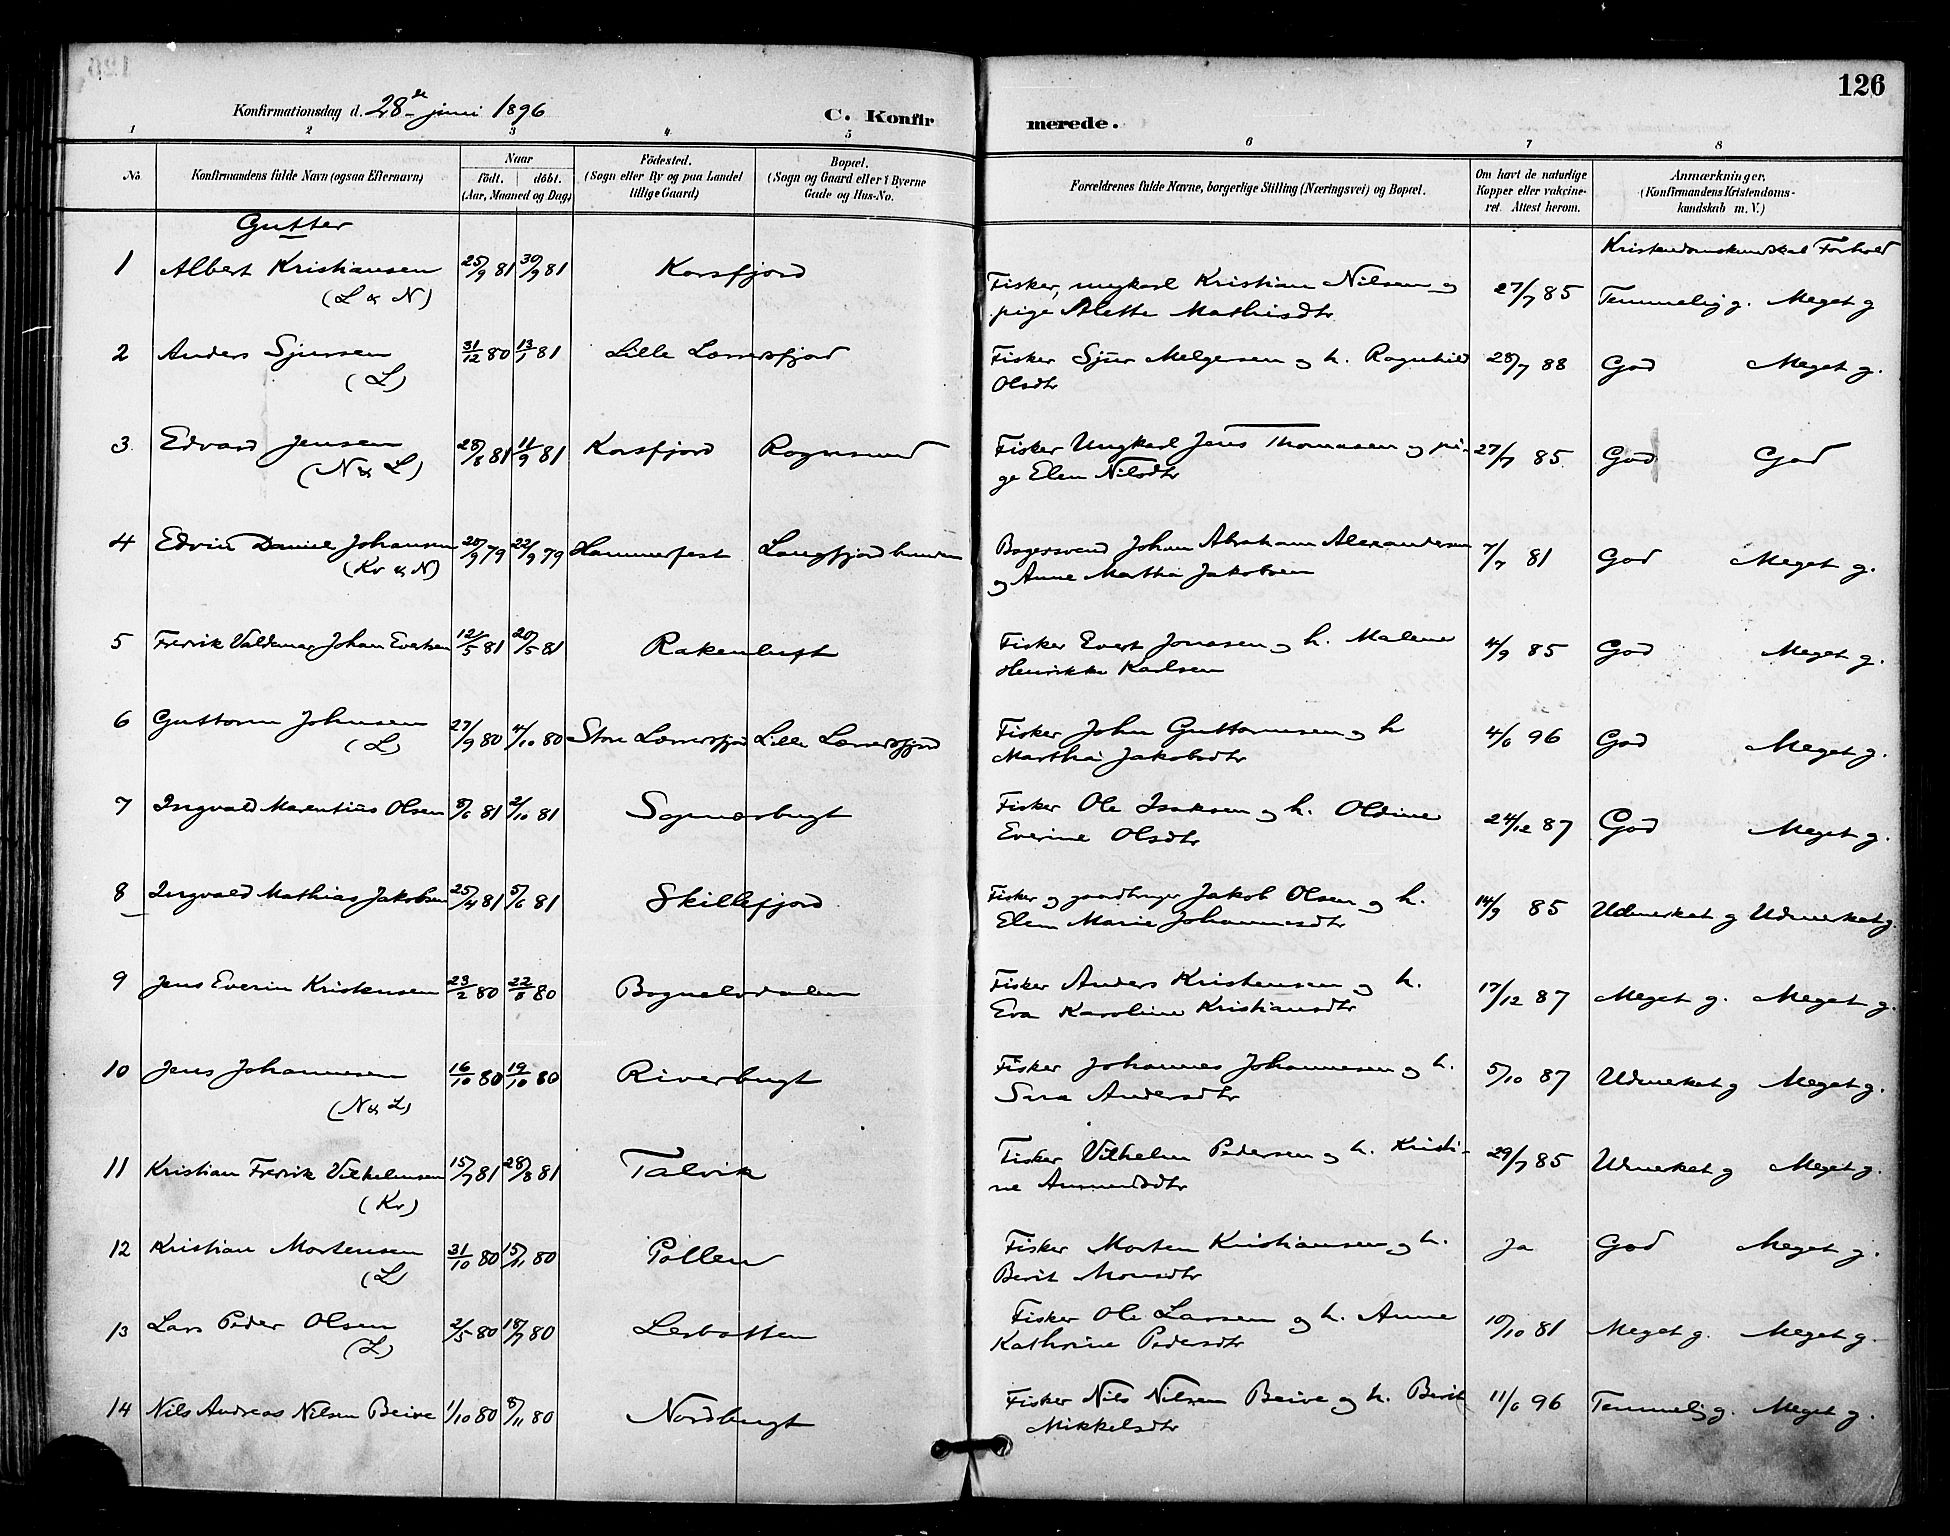 126
Konfirmationsdag d. 28de juni 1896
C. Konfirmerede.
1 2 3 4 5 6 7 8
No. Konfirmandens fulde Navn (ogsaa Efternavn) Naar födt. döbt. (Aar, Maaned og Dag) Födested. (Sogn eller By og paa Landet tillige Gaard) Bopæl. (Sogn og Gaard eller i Byerne Gade og Hus-No. Forældrenes fulde Navne, borgerlige Stilling (Næringsvei) og Bopæl. Om havt de naturlige Kopper eller vakcineret. Attest herom. Anmærkninger. (Konfirmandens Kristendomskundskab m. V.)
Gutter
Kristendomskundskab Forhold
1 Albert Kristiansen 25/9 81 30/9 81 Korsfjord Fisker, ungkarl Kristian Nilsen og 27/7 85 Temmelig g. Meget g
(L & N) pige Alette Mathisdtr
2 Anders Sjursen 31/12 80 13/1 81 Lille Lerresfjord Fisker Sjur Melgersen og h. Ragnhild 28/7 88 God Meget g.
(L) Olsdtr
3 Edvard Jensen 28/8 81 11/9 81 Korsfjord Rognsund Fisker Ungkarl Jens Thomasen og pi- 27/7 85 God God
(N & L) ge Elen Nilsdtr
4 Edvin Daniel Johansen 20/9 79 22/9 79 Hammerfest Langfjordbunden Bagersvend Johan Abraham Alexandersen 7/7 81 God Meget g.
(Kv & N) og Anne Martha Jakobsen
5 Fredrik Valdemar Johan Evertsen 12/5 81 20/5 81 Rakenluft Fisker Evert Jonasen og h. Malene 4/9 85 God Meget g.
Henrikke Karlsen
6 Guttorm Johnsen 27/9 80 4/10 80 Store Lerresfjord Lille Lerresfjord Fisker John Guttormsen og h 4/6 96 God Meget g.
(L) Martha Jakobsdtr
7 Ingvald Marentius Olsen 5/6 81 2/10 81 Sopnesbugt Fisker Ole Isaksen og h. Oldine 24/12 87 God Meget g.
Everine Olsdtr
8 Ingvald Mathias Jakobsen 25/4 81 5/6 81 Skillefjord Fisker og gaardbruger Jakob Olsen og h. 14/9 85 Udmerket g Udmerket g.
Elen Marie Johannesdtr
9 Jens Everin Kristensen 23/2 80 22/5 80 Bognelvdalen Fisker Anders Kristensen og h. 17/12 87 Meget g. Meget g.
Eva Karoline Kristiansdtr
10 Jens Johannesen 16/10 80 19/10 80 Riverbugt Fisker Johannes Johannesen og h. 5/10 87 Udmerket g Meget g.
(N & L) Sara Andersdtr
11 Kristian Fredrik Vilhelmsen 15/7 81 28/8 81 Talvik Fisker Vilhelm Pedersen og h. Kristi- 29/7 85 Udmerket g Meget g.
(Kv) ne Amundsdtr
12 Kristian Mortensen 31/10 80 15/11 80 Pollen Fisker Morten Kristiansen og h. Ja God Meget g.
(L) Berit Monsdtr
13 Lars Peder Olsen 2/5 80 18/7 80 Lerbotten Fisker Ole Larsen og h. Anne 10/10 81 Meget g. Meget g.
(L) Kathrine Pedersdtr
14 Nils Andreas Nilsen Beive 1/10 80 8/11 80 Nordbugt Fisker Nils Nilsen Beive og h. Berit 11/6 96 Temmelig g. Meget g.
Mikkelsdtr